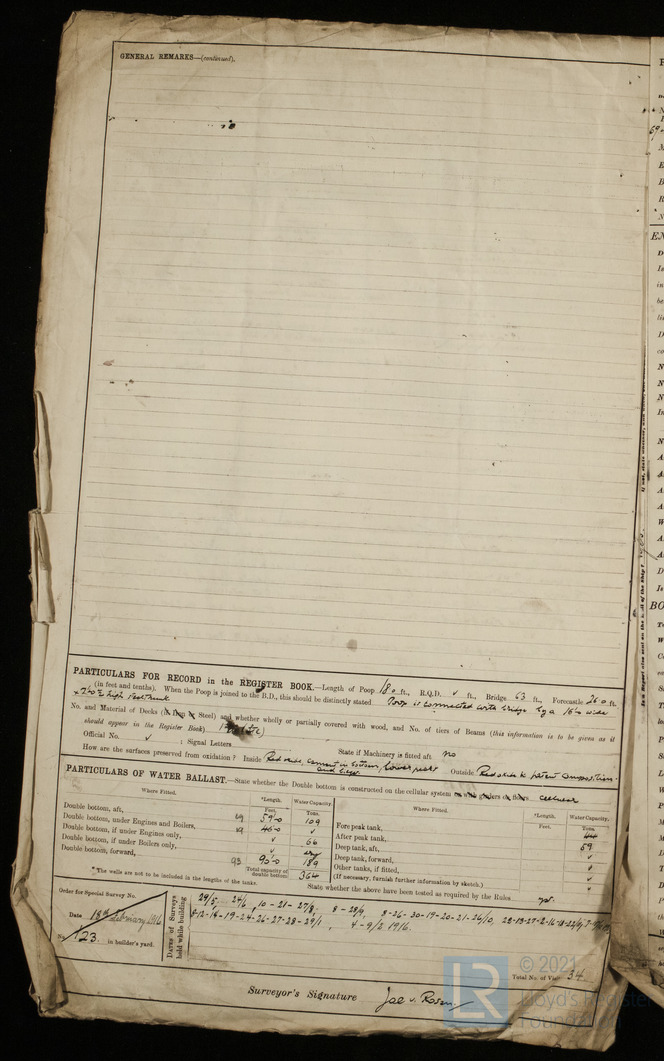 GENERAL REMARKS—(continued).
PARTICULARS FOR RECORD in the REGISTER BOOK.—Length of Poop 18.0 ft., R.Q.D. ✓ ft., Bridge 63 ft., Forecastle 26.0 ft.
(in feet and tenths). When the Poop is joined to the B.D., this should be distinctly stated Poop is connected with bridge by a 16'0 wide
x 7'0 high
No. and Material of Decks (in Iron or Steel) and whether wholly or partially covered with wood, and No. of tiers of Beams (this information is to be given as it
should appear in the Register Book)
Official No. ✓ ; Signal Letters State if Machinery is fitted aft no
How are the surfaces preserved from oxidation? Inside Red oxide, cement in bottom, lower part Outside Red oxide & patent composition
PARTICULARS OF WATER BALLAST.—State whether the Double bottom is constructed on the cellular system or with girders on floors cellular
Where Fitted. *Length. Water Capacity. Where Fitted. *Length. Water Capacity.
Feet. Tons. Feet. Tons.
Double bottom, aft, 59.0 109 Fore peak tank, 44
Double bottom, under Engines and Boilers, 46.0 ✓ After peak tank, 59
Double bottom, if under Engines only, ✓ 66 Deep tank, aft, ✓
Double bottom, if under Boilers only, ✓ Deep tank, forward, ✓
Double bottom, forward, 93 90.0 189 Other tanks, if fitted, ✓
Total capacity of double bottom 364 (If necessary, furnish further information by sketch.)
* The wells are not to be included in the lengths of the tanks. State whether the above have been tested as required by the Rules yes.
Order for Special Survey No.
Date 18th February 1916
No. 123. in builder's yard.
DATES of Surveys held while building
29/5, 24/6, 10-21-27/8, 8-29/9,
8-12-18-19-24-26-27-28-29/1, 4-9/2 1916.
Total No. of Visits 34
Surveyor's Signature Joe v. Rosen
© 2021
LR Lloyd's Register
Foundation